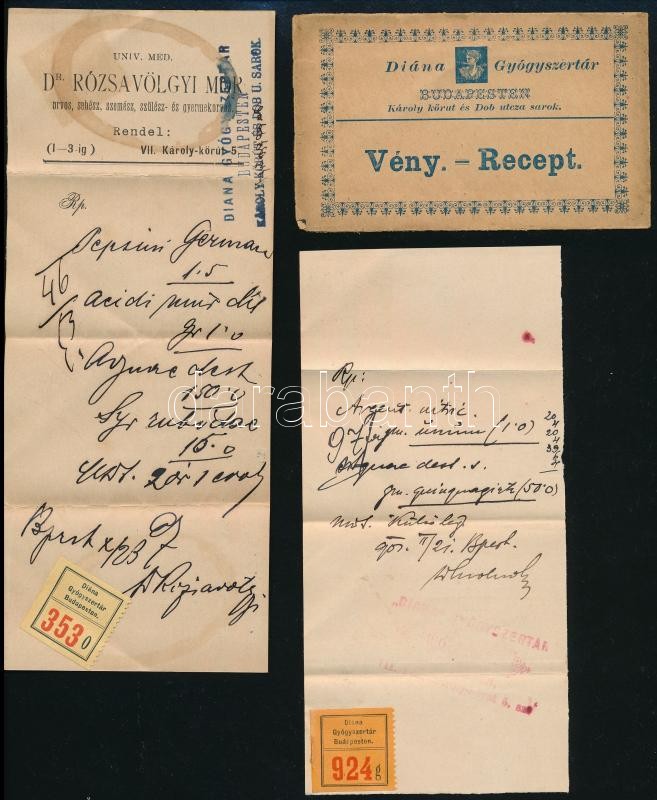 UNIV. MED.
DR. RÓZSAVÖLGYI MÓR
orvos, sebész, szemész, szülész- és gyermekorvos
Rendel:
(1—3-ig) VII. Károly-körút 5.
DIANA GYÓGYSZERTÁR
BUDAPESTEN
KÁROLY-KÖRÚT ÉS DOB U. SAROK.
Rp.
Pepsini German
1·5
acidi mur dil
gr 1·0
Aquae dest
150·0
Syr rubi idae
15.0
Bpest X/23
Diána
Gyógyszertár
Budapesten.
353 0
Diána Gyógyszertár
BUDAPESTEN
Károly körut és Dob utcza sarok.
Vény. – Recept.
Rp:
Argent. nitric.
gm. unum (1·0)
Aquae dest. s.
gm. quinquaginta (50·0)
Bpest.
Diána
Gyógyszertár
Budapesten.
924 g
darabanth